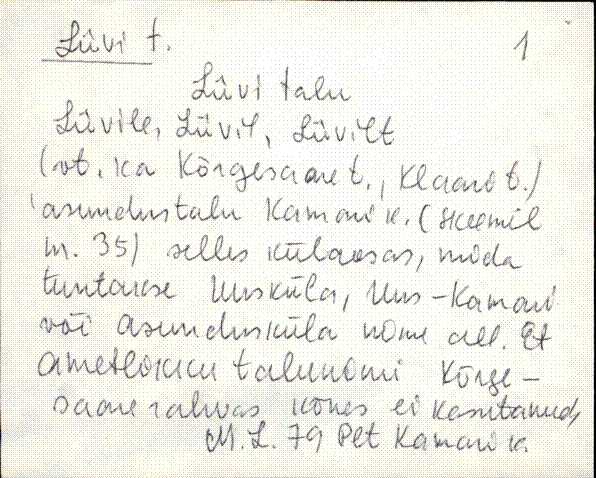 Lûvi t.
1
Lûvi talu
Lûvile, Lûvil, Lûvilt
(vt. ka Kõrgesaare t., Klaari t.)
asundustalu Kamari k. (skeemil
nr. 35) selles külaosas, mida
tuntakse Uusküla, Uus-Kamari
või Asundusküla nime all. Et
ametlikku talunimi Kõrge-
saare rahvas kõnes ei kasutanud,
M. L. 79 Plt Kamari k